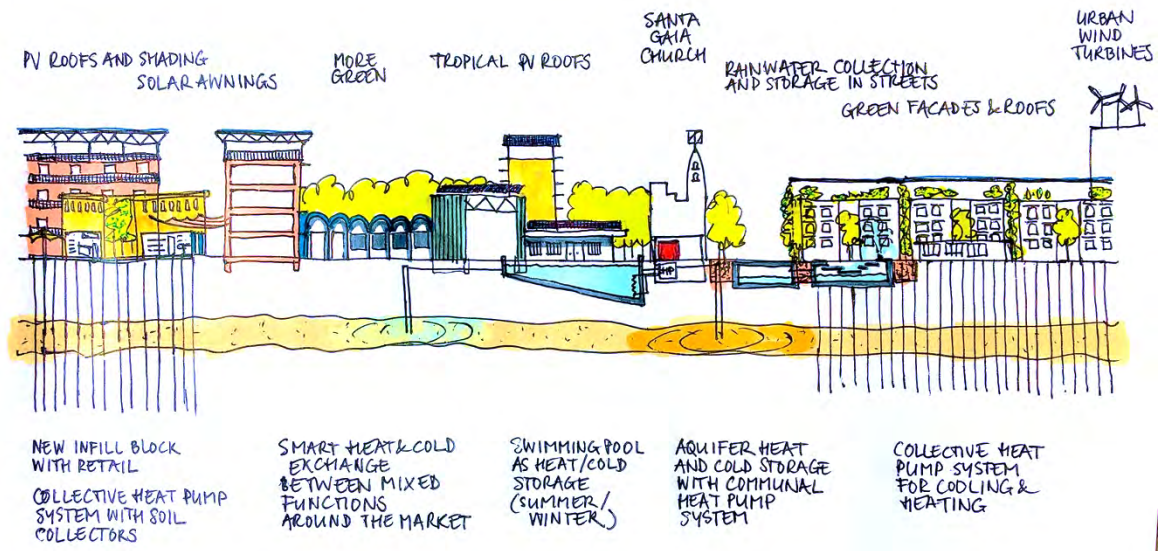 PV ROOFS AND SHADING
SOLAR AWNINGS
MORE
GREEN
TROPICAL PV ROOFS
SANTA
GAIA
CHURCH
RAINWATER COLLECTION
AND STORAGE IN STREETS
GREEN FACADES & ROOFS
URBAN
WIND
TURBINES
HP
NEW INFILL BLOCK
WITH RETAIL
COLLECTIVE HEAT PUMP
SYSTEM WITH SOIL
COLLECTORS
SMART HEAT & COLD
EXCHANGE
BETWEEN MIXED
FUNCTIONS
AROUND THE MARKET
SWIMMING POOL
AS HEAT/COLD
STORAGE
(SUMMER/
WINTER)
AQUIFER HEAT
AND COLD STORAGE
WITH COMMUNAL
HEAT PUMP
SYSTEM
COLLECTIVE HEAT
PUMP SYSTEM
FOR COOLING &
HEATING